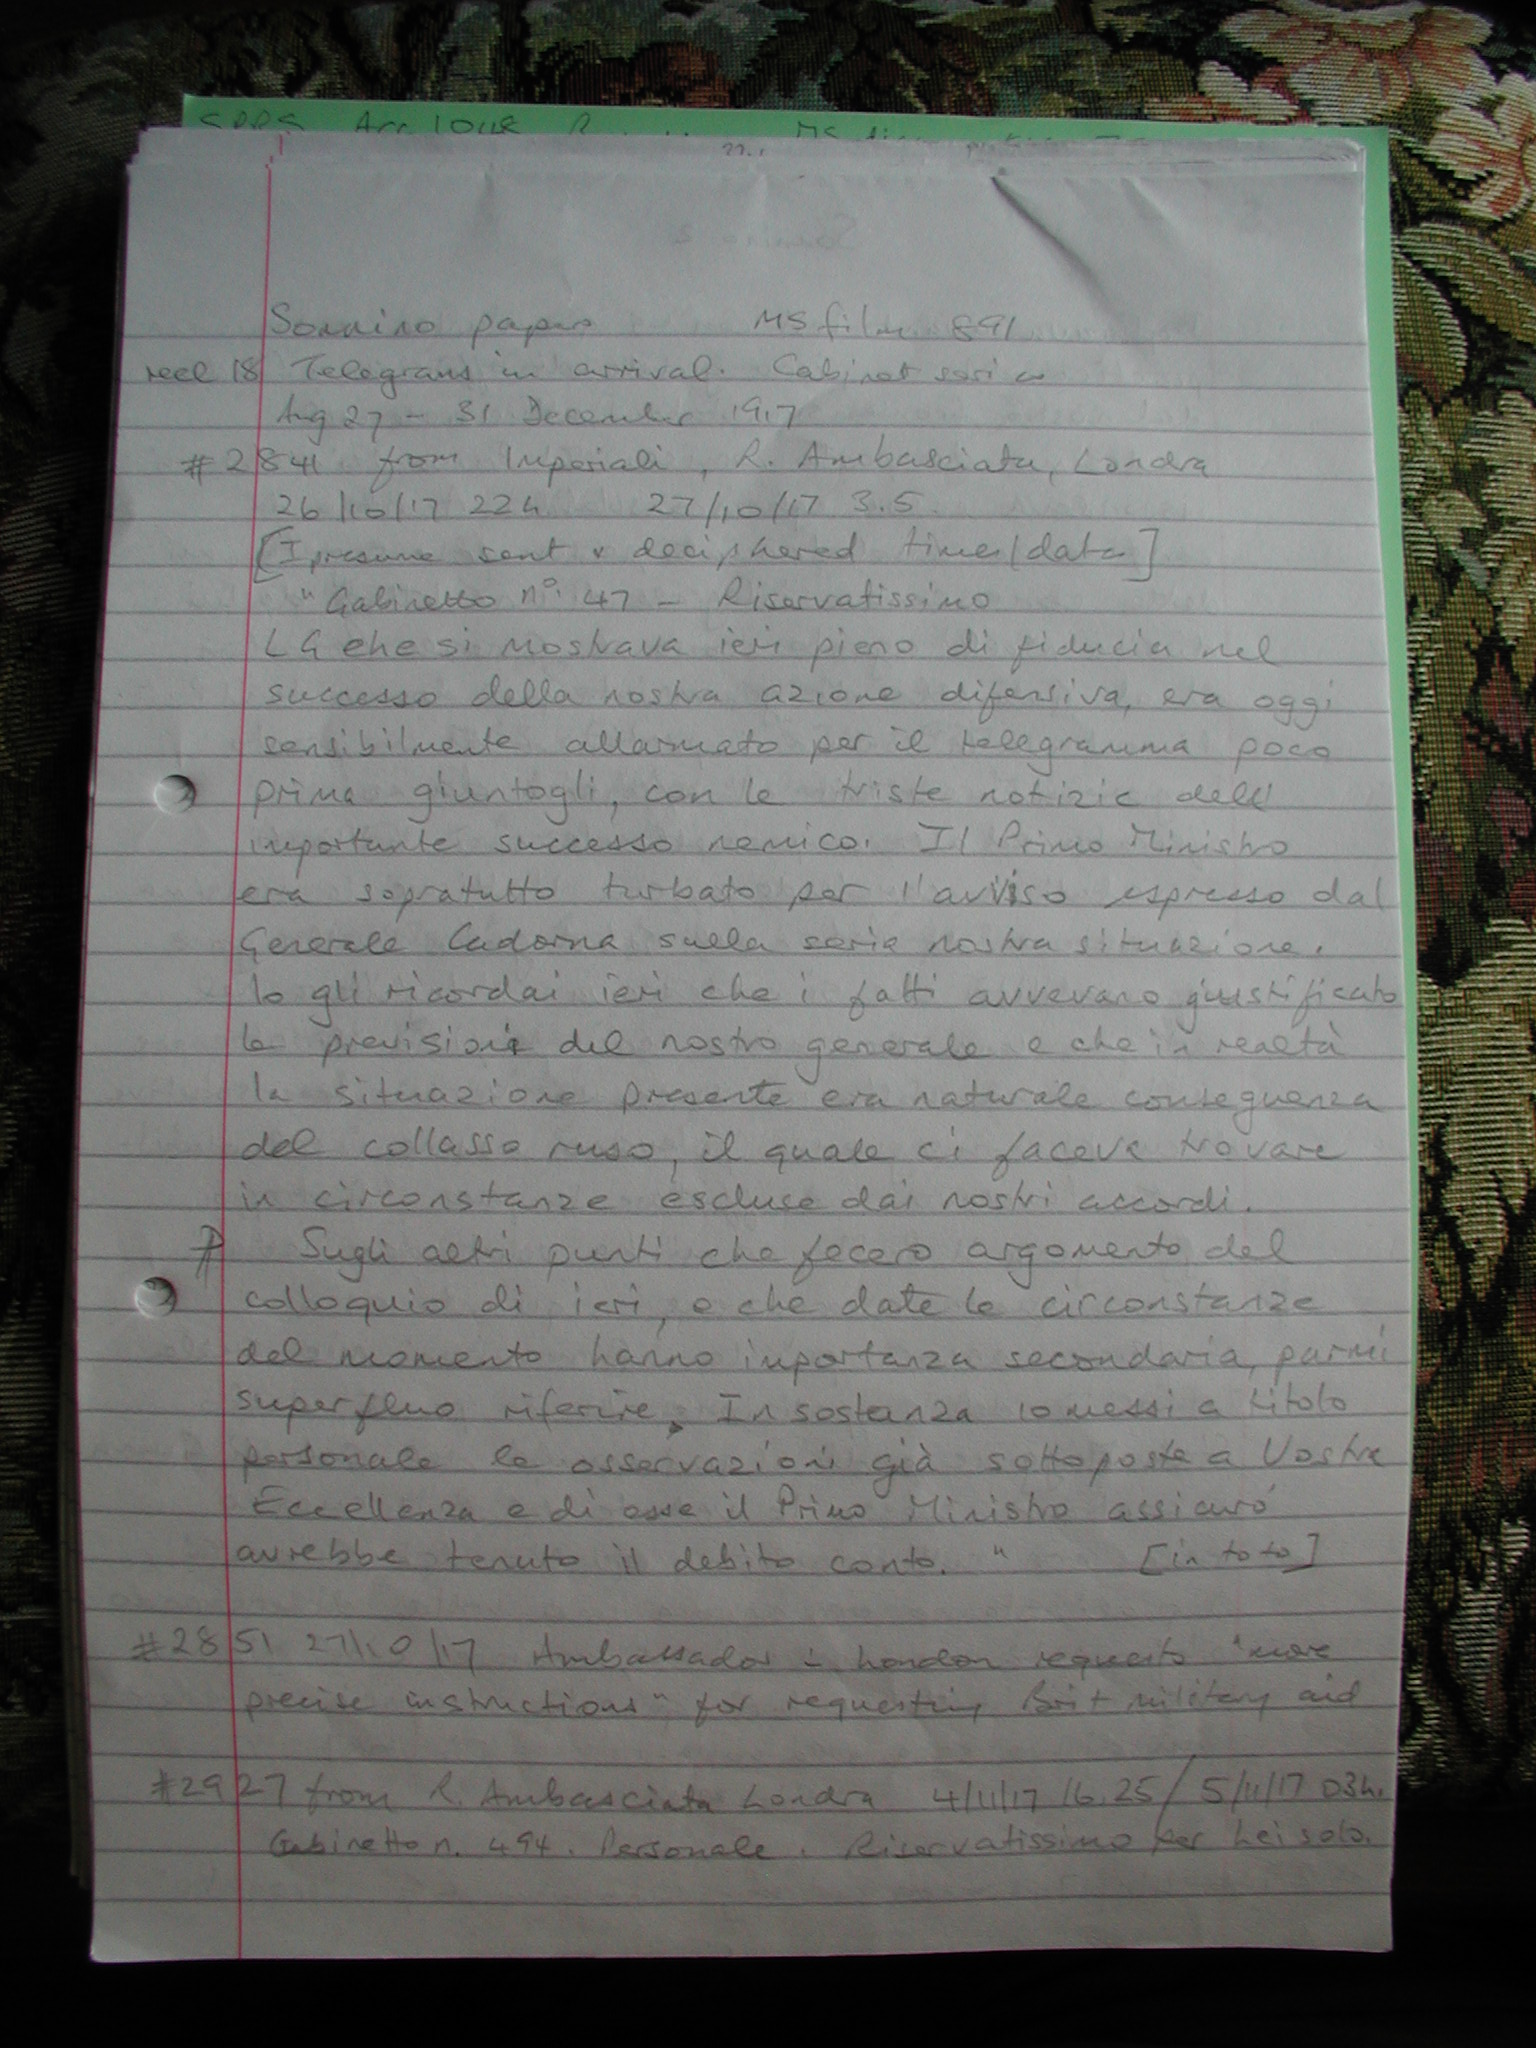 Sonnino papers MS film 891
reel 18 Telegrams in arrival. Cabinet series
Aug 27 - 31 December 1917
#2841 from Imperiali, R. Ambasciata, Londra
26/10/17 22h 27/10/17 3.5
[I presume sent & deciphered times/data]
"Gabinetto nº. 47 - Riservatissimo
LG che si mostrava ieri pieno di fiducia nel
successo della nostra azione difensiva, era oggi
sensibilmente allarmato per il telegramma poco
prima giuntogli, con le triste notizie dell'
importante successo nemico. Il Primo Ministro
era sopratutto turbato per l'avviso espresso dal
Generale Cadorna sulla seria nostra situazione.
Io gli ricordai ieri che i fatti avvevano giustificato
le previsioni del nostro generale e che in realtà
la situazione presente era naturale conseguenza
del collasso russo, il quale ci faceva trovare
in circonstanze escluse dai nostri accordi.
Sugli altri punti che fecero argomento del
colloquio di ieri, e che date le circonstanze
del momento hanno importanza secondaria, parmi
superfluo riferire. In sostanza io messi a titolo
personale le osservazioni già sottoposte a Vostra
Eccellenza e di esse il Primo Ministro assicurò
avrebbe tenuto il debito conto. " [in toto]
#2851 27/10/17 Ambassador in London requests "more
precise instructions" for requesting Brit military aid
#2927 from R. Ambasciata Londra 4/11/17 16.25/ 5/11/17 03h.
Gabinetto n. 494. Personale. Riservatissimo per Lei solo.